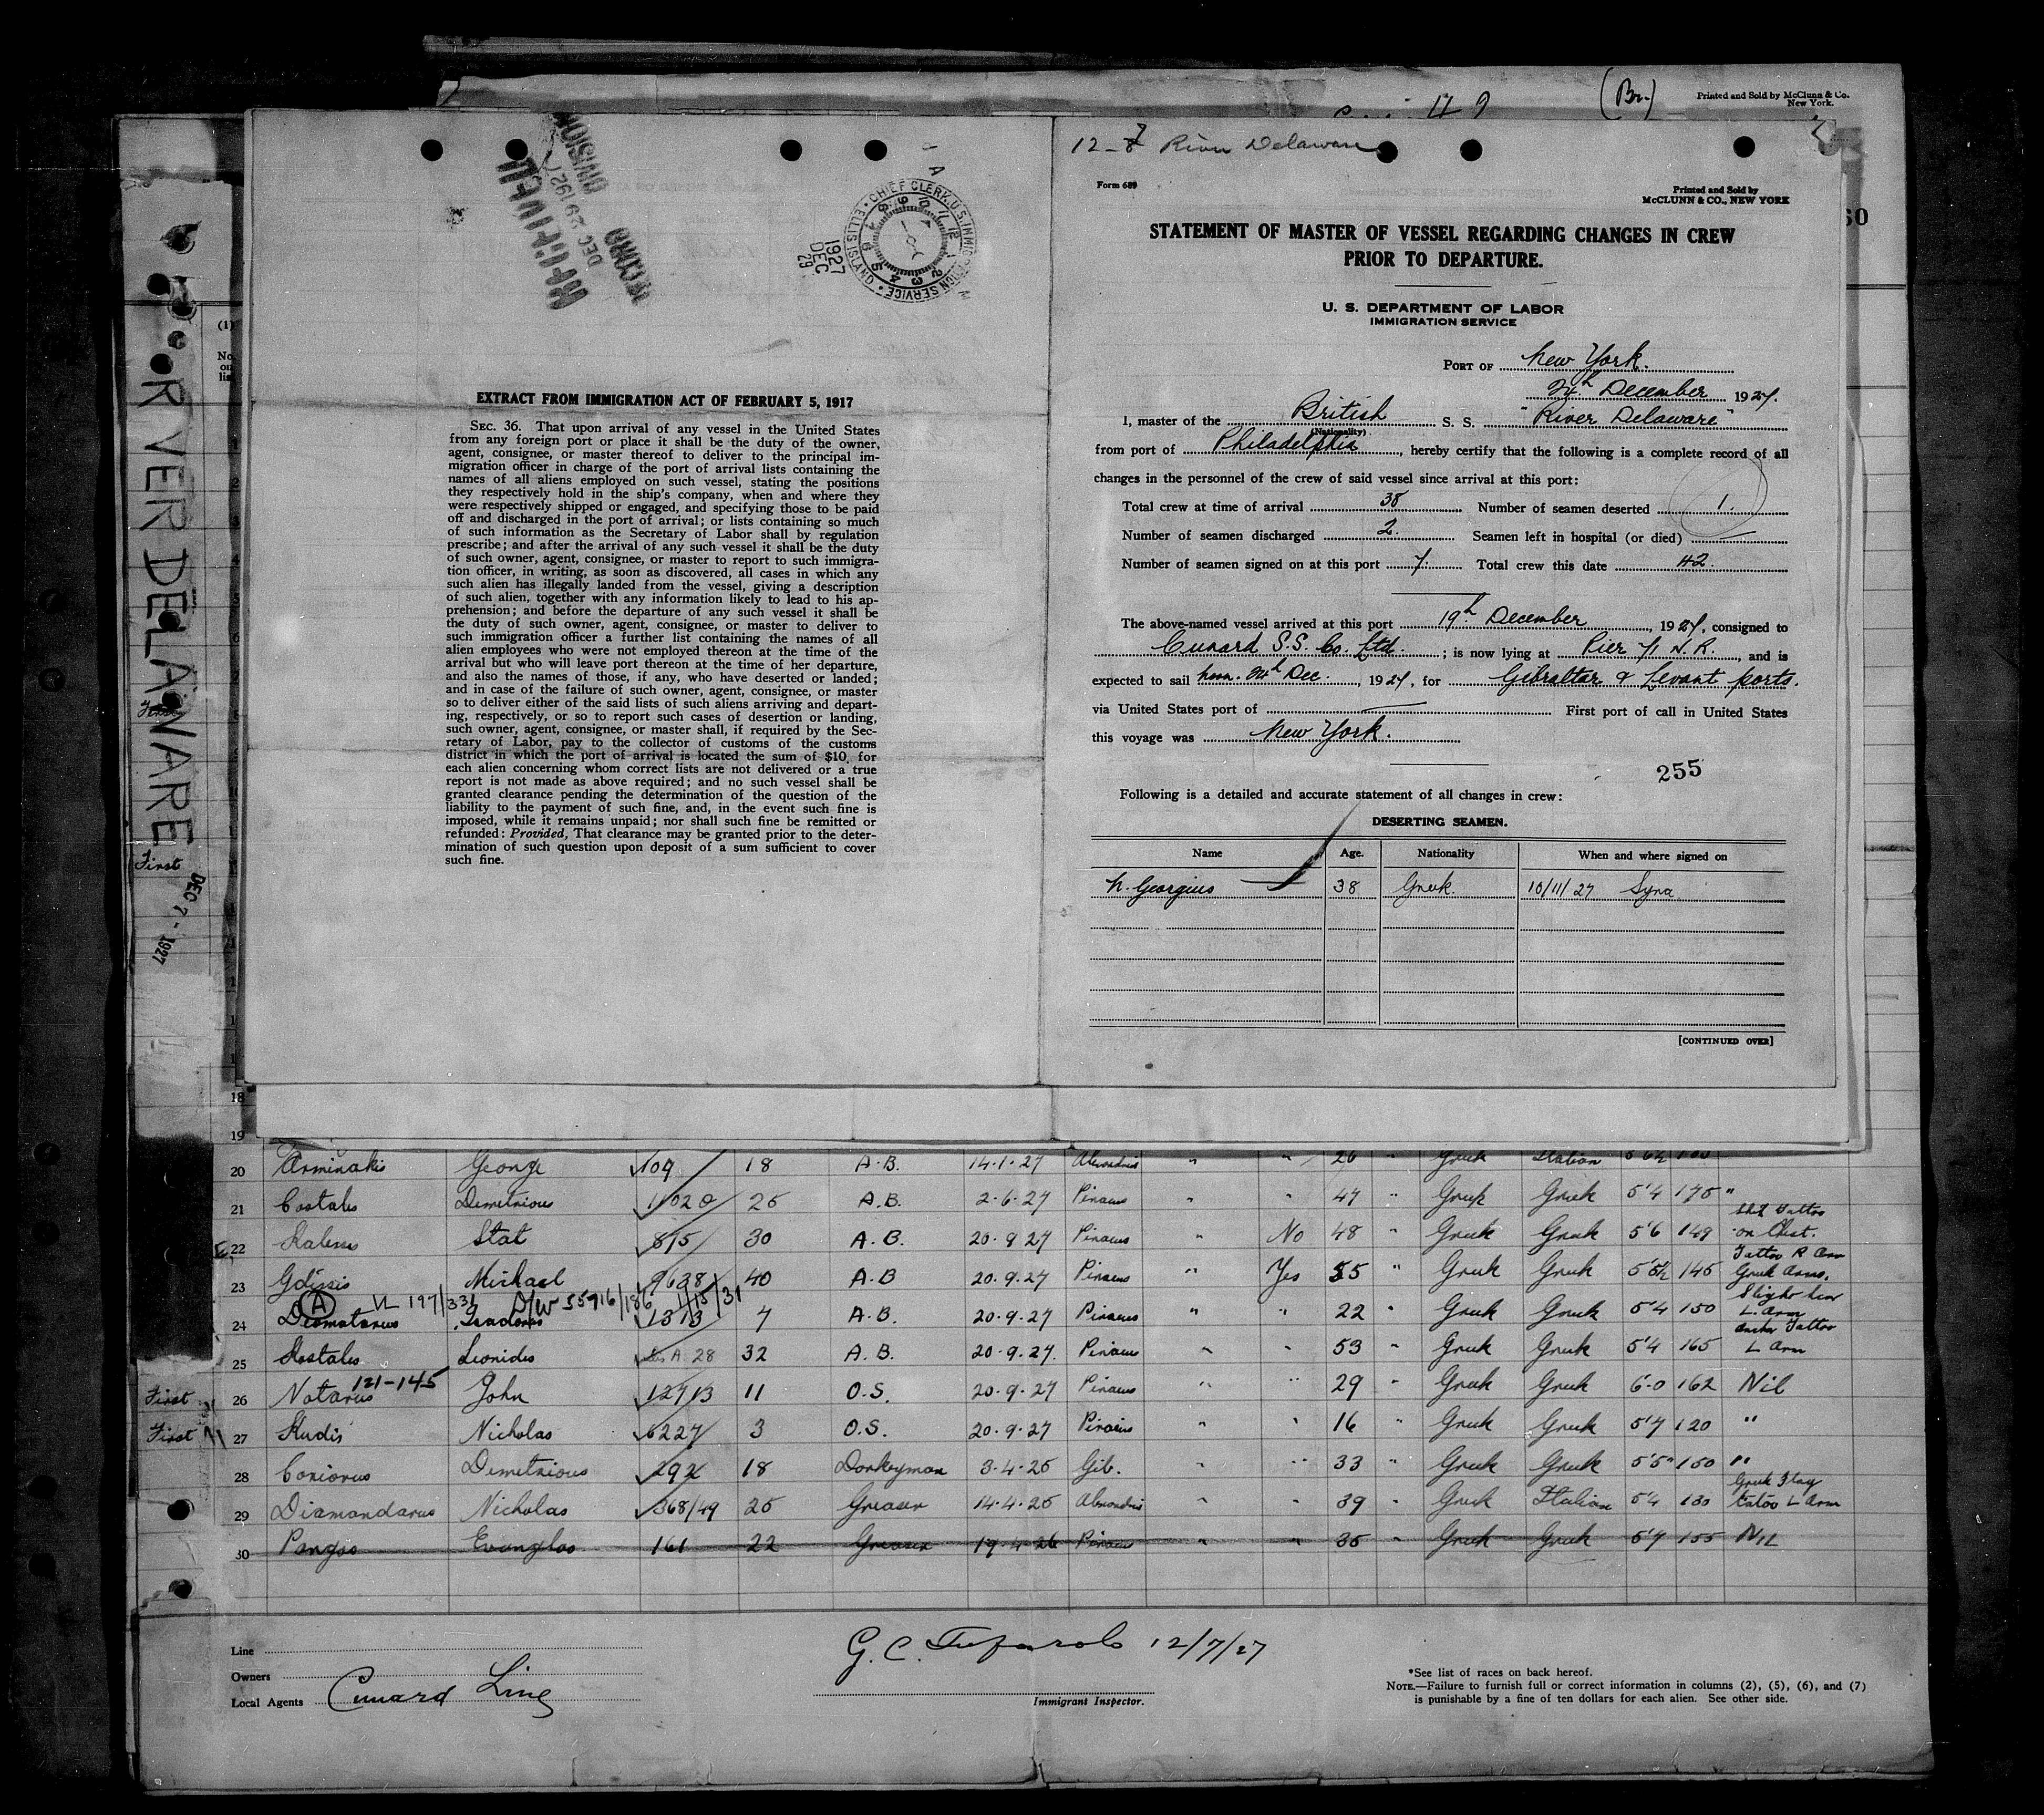 (Br.)
Printed and Sold by McClunn & Co.
New York.
RIVER DELAWARE
First
DEC 7 - 1927
(1)
No.
on
list
RECEIVED
DEC 29 1927
RECORD DIVISION
CHIEF CLERK, U.S. IMMIGRATION SERVICE
ELLIS ISLAND
1927
DEC
29
EXTRACT FROM IMMIGRATION ACT OF FEBRUARY 5, 1917
SEC. 36. That upon arrival of any vessel in the United States
from any foreign port or place it shall be the duty of the owner,
agent, consignee, or master thereof to deliver to the principal im-
migration officer in charge of the port of arrival lists containing the
names of all aliens employed on such vessel, stating the positions
they respectively hold in the ship's company, when and where they
were respectively shipped or engaged, and specifying those to be paid
off and discharged in the port of arrival; or lists containing so much
of such information as the Secretary of Labor shall by regulation
prescribe; and after the arrival of any such vessel it shall be the duty
of such owner, agent, consignee, or master to report to such immigra-
tion officer, in writing, as soon as discovered, all cases in which any
such alien has illegally landed from the vessel, giving a description
of such alien, together with any information likely to lead to his ap-
prehension; and before the departure of any such vessel it shall be
the duty of such owner, agent, consignee, or master to deliver to
such immigration officer a further list containing the names of all
alien employees who were not employed thereon at the time of the
arrival but who will leave port thereon at the time of her departure,
and also the names of those, if any, who have deserted or landed;
and in case of the failure of such owner, agent, consignee, or master
so to deliver either of the said lists of such aliens arriving and depart-
ing, respectively, or so to report such cases of desertion or landing,
such owner, agent, consignee, or master shall, if required by the Sec-
retary of Labor, pay to the collector of customs of the customs
district in which the port of arrival is located the sum of $10, for
each alien concerning whom correct lists are not delivered or a true
report is not made as above required; and no such vessel shall be
granted clearance pending the determination of the question of the
liability to the payment of such fine, and, in the event such fine is
imposed, while it remains unpaid; nor shall such fine be remitted or
refunded: Provided, That clearance may be granted prior to the deter-
mination of such question upon deposit of a sum sufficient to cover
such fine.
12-7 River Delaware
Form 689
Printed and Sold by
McCLUNN & CO., NEW YORK
STATEMENT OF MASTER OF VESSEL REGARDING CHANGES IN CREW
PRIOR TO DEPARTURE.
U. S. DEPARTMENT OF LABOR
IMMIGRATION SERVICE
PORT OF New York.
24th December 1927.
I, master of the British S. S. "River Delaware"
(Nationality)
from port of Philadelphia, hereby certify that the following is a complete record of all
changes in the personnel of the crew of said vessel since arrival at this port:
Total crew at time of arrival 38 Number of seamen deserted 1.
Number of seamen discharged 2. Seamen left in hospital (or died) —
Number of seamen signed on at this port 7. Total crew this date 42.
The above-named vessel arrived at this port 19th December, 1927, consigned to
Cunard S.S. Co. Ltd.; is now lying at Pier 71 N.R., and is
expected to sail noon. 24th Dec., 1927, for Gibraltar & Levant ports.
via United States port of — First port of call in United States
this voyage was New York.
255
Following is a detailed and accurate statement of all changes in crew:
DESERTING SEAMEN.
Name Age. Nationality When and where signed on
N. Georgius 38 Greek. 10/11/27 Syra
[CONTINUED OVER]
18
19
20 Arminakis George 109 18 A.B. 14.1.27 " " 26 " Greek Italian
21 Costales Demetrious 11020 25 A.B. 2.6.27 Piraeus " " 47 " Greek Greek 5'4 175 "
22 Kalens Stat 815 30 A.B. 20.9.27 Piraeus " No 48 " Greek Greek 5'6 149 Tattoo on Chest.
23 Golissis Michael 9638 40 A.B 20.9.27 Piraeus " Yes 55 " Greek Greek 5'5½ 145 Tattoo R Arm Greek Arms.
(A) VL 197/331 D/W 55716/186 1/15/31
24 Diamatarus Isadorus 1313 7 A.B. 20.9.27 Piraeus " " 22 " Greek Greek 5'4 150 L. Arm
25 Kostales Leonides 28 32 A.B. 20.9.27. Piraeus " " 53 " Greek Greek 5'4 165 Anchor Tattoo L Arm
121-145
First 26 Notarus John 12713 11 O.S. 20.9.27 Piraeus " " 29 " Greek Greek 6.0 162 Nil
First 27 Kudis Nicholas 6227 3 O.S. 20.9.27 Piraeus " " 16 " Greek Greek 5'7 120 "
28 Coniorus Demetrious 292 18 Donkeyman 3.4.25 Gib. " " 33 " Greek Greek 5'5" 150 "
29 Diamandarus Nicholas 368/49 25 Greaser 14.4.25 " " 39 " Greek Italian 5'4 130 Greek Flag Tatoo L Arm
30 Pangos Evangelos 161 22 Greaser 19.4.26 Piraeus " " 35 " Greek Greek 5'7 155 NIL
Line
Owners
Local Agents Cunard Line
G. C. Tufarolo 12/7/27
Immigrant Inspector.
*See list of races on back hereof.
NOTE.—Failure to furnish full or correct information in columns (2), (5), (6), and (7)
is punishable by a fine of ten dollars for each alien. See other side.